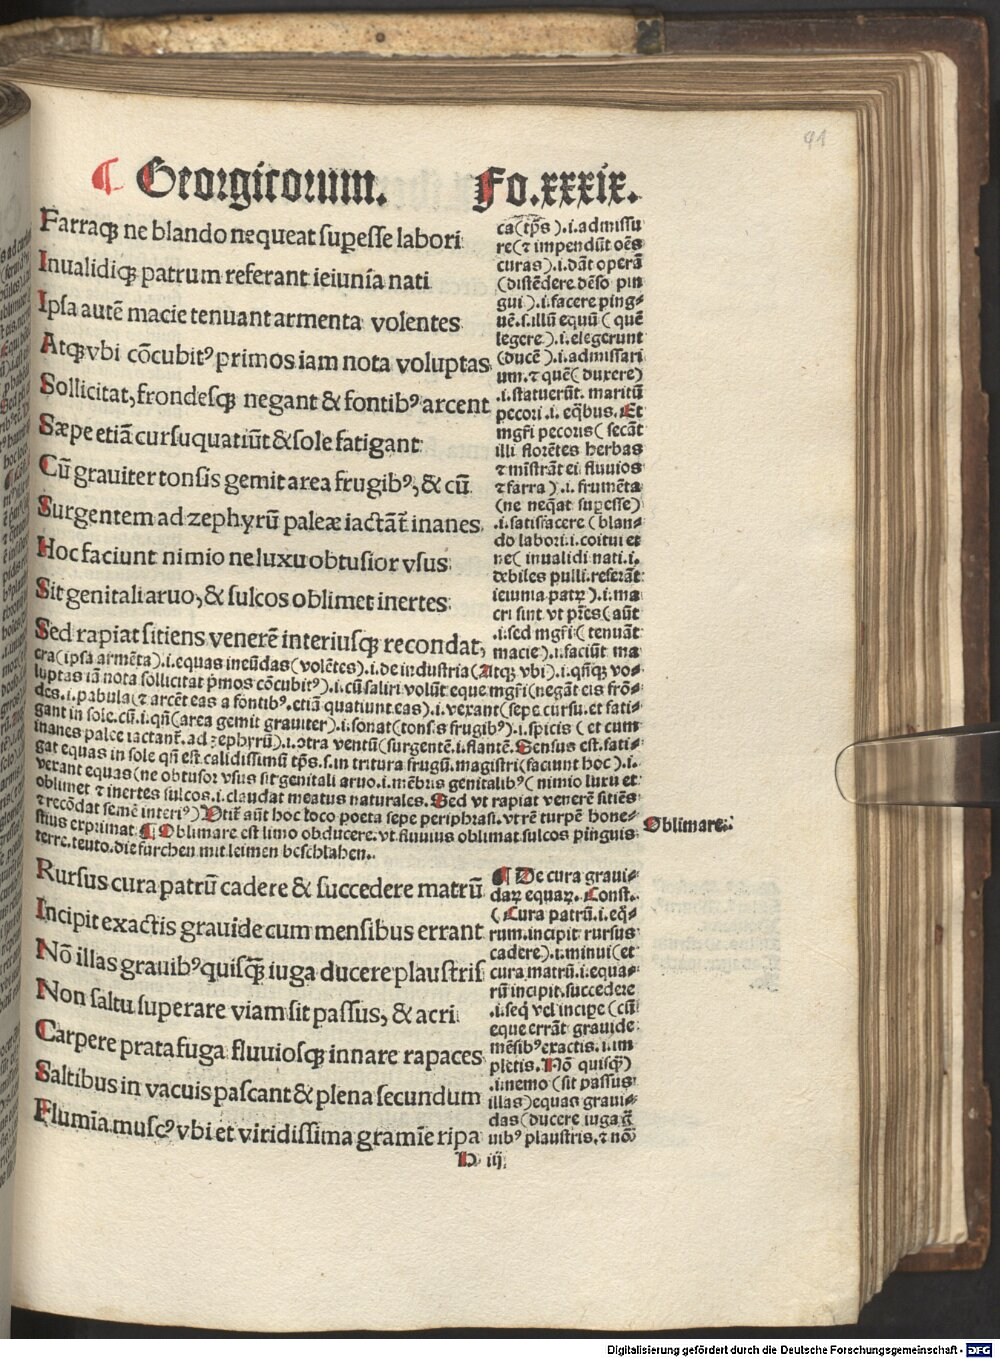 91
¶ Georgicorum. Fo.xxxix.
Farraqꝫ ne blando nequeat suꝑesse labori
Inualidiqꝫ patrum referant ieiunia nati
Ipsa autē macie tenuant armenta volentes
Atqꝫ vbi cōcubitꝰ primos iam nota voluptas
Sollicitat, frondesqꝫ negant & fontibꝰ arcent
Sæpe etiā cursu quatiūt & sole fatigant
Cū grauiter tonsis gemit area frugibꝰ, & cū
Surgentem ad zephyrū paleæ iactāt᷑ inanes
Hoc faciunt nimio ne luxu obtusior vsus
Sit genitali aruo, & sulcos oblimet inertes
Sed rapiat sitiens venerē interiusqꝫ recondat,
ca(tp̄s).i.admissu
re(⁊ impendūt oēs
curas).i.dāt operā
(distēdere dēso pin
gui).i.facere ping⸗
uē.s.illū equū (quē
legere).i.elegerunt
(ducē).i.admissari
um.⁊ quē(duxere)
.i.statuerūt. maritū
pecori.i.eq̄bus. Et
mgr̄i pecoris(secāt
illi florētes herbas
⁊ mīstrāt ei fluuios
⁊ farra).i.frumēta
(ne neq̄at suꝑesse)
.i.satisfacere (blan⸗
do labori.i.coitui et
ne( inualidi nati.i.
debiles pulli.referāt
ieiunia patꝝ).i.ma
cri sint vt pr̄es(aūt
.i.sed mgr̄i(tenuāt
macie).i.faciūt ma
cra(ipsa armēta).i.equas ineūdas(volētes).i.de industria(Atqꝫ vbi).i.qn̄qꝫ vo⸗
luptas iā nota sollicitat p̄mos cōcubitꝰ).i.cū saliri volūt eque mgr̄i(negāt eis frō⸗
des.i.pabula(⁊ arcēt eas a fontibꝰ.etiā quatiunt eas).i.vexant(sepe cursu.et fati⸗
gant in sole.cū.i.qn̄(area gemit grauiter).i.sonat(tonsis frugibꝰ).i.spicis (et cum
inanes palee iactant᷑.ad zephyrū).i.ↄtra ventū(surgentē.i.flantē. Sensus est.fati⸗
gat equas in sole qn̄ est calidissimū tp̄s.s.in tritura frugū.magistri(faciunt hoc).i.
vexant equas(ne obtusior vsus sit genitali aruo.i.mēbris genitalibꝰ(nimio luxu et
oblimet ⁊ inertes sulcos.i.claudat meatus naturales. Sed vt rapiat venerē sitiēs
⁊ recōdat semē interiꝰ) Utit᷑ aūt hoc loco poeta sepe periphrasi.vt rē turpē hone⸗
stius exprimat. ¶ Oblimare est limo obducere.vt fluuius oblimat sulcos pinguis
terre.teuto.die furchen mit leimen beschlahen..
Oblimare.
Rursus cura patrū cadere & succedere matrū
Incipit exactis grauide cum mensibus errant
Nō illas grauibꝰ quisqꝫ̄ iuga ducere plaustris
Non saltu superare viam sit passus, & acri
Carpere prata fuga fluuiosqꝫ innare rapaces
Saltibus in vacuis pascant & plena secundum
Flumīa.muscꝰ vbi et viridissima gramīe ripa
¶ De cura graui⸗
daꝝ equaꝝ. Const.
( Cura patrū.i.eq̄⸗
rum.incipit rursus
cadere).i.minui(et
cura matrū.i.equa⸗
rū incipit.succedere
.i.seq̄ vel incipe (cū
eque errāt grauide
mēsibꝰ exactis.i.im
pletis. Nō quisqꝫ̄)
.i.nemo (sit passus
illas)equas graui⸗
das(ducere iuga g̃
uibꝰ plaustris.⁊ nō
D iij
Digitalisierung gefördert durch die Deutsche Forschungsgemeinschaft - DFG